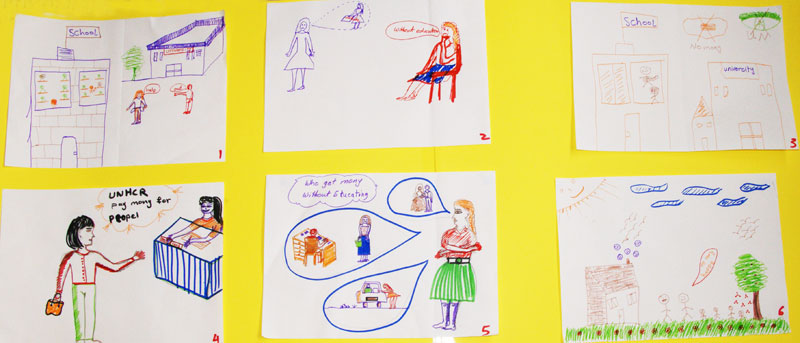 School
help
1
Without education
2
School
No mony
UN
university
3
UNHCR
pay mony for
PROPEl
4
Who get mony
Without Educating
5
6